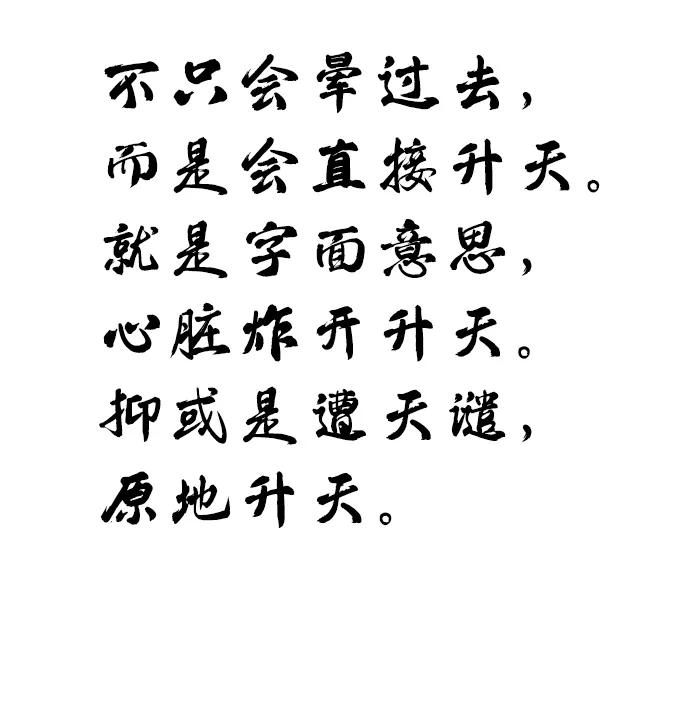 不只会晕过去，
而是会直接升天。
就是字面意思，
心脏炸开升天。
抑或是遭天谴，
原地升天。